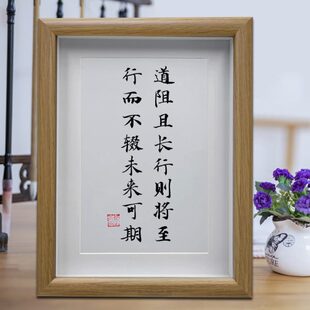 道阻且长行则将至
行而不辍未来可期